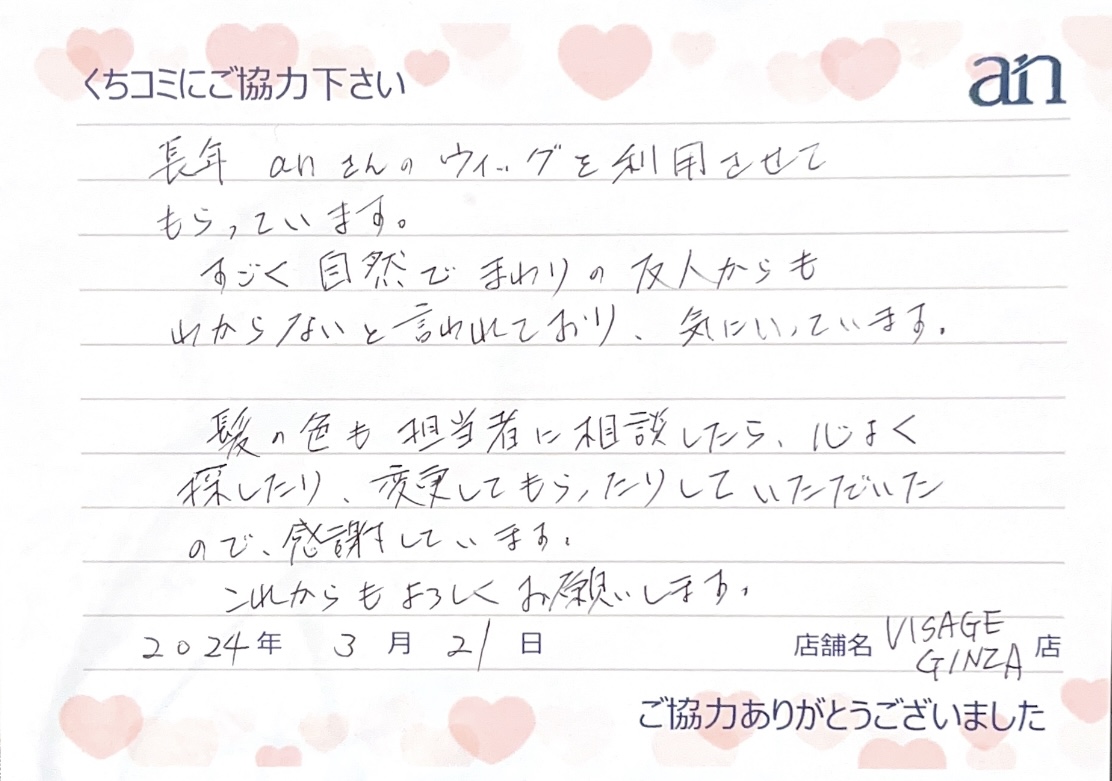 くちコミにご協力下さい
an
長年 anさんのウィッグを利用させて
もらっています。
すごく自然でまわりの友人からも
わからないと言われており、気にいっています。
髪の色も担当者に相談したら、心よく
探したり、変更してもらったりしていただいた
ので、感謝しています。
これからもよろしくお願いします。
2024年 3月 21日 店舗名 VISAGE GINZA 店
ご協力ありがとうございました